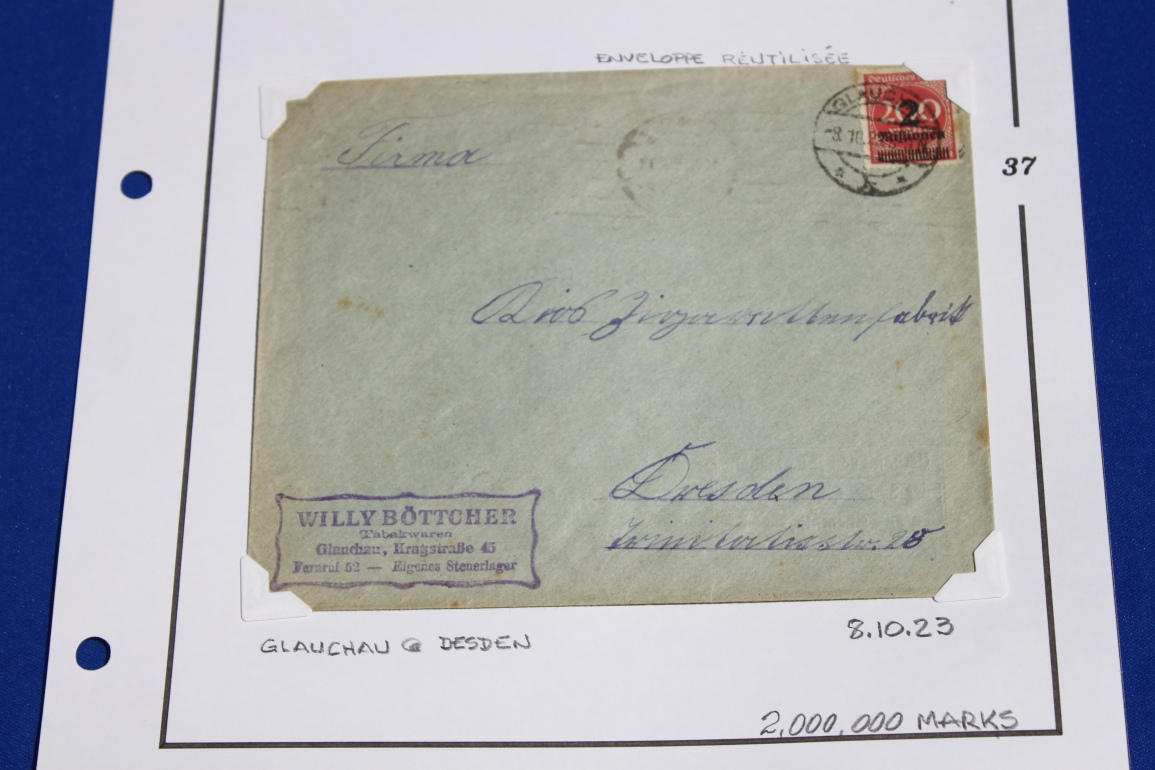 ENVELOPPE RÉUTILISÉE
Deutsches
GLAUCH
200
2
Millionen
8.10.2
37
Firma
Zigarettenfabrik
Dresden
Trinitatisstr. 28
WILLY BÖTTCHER
Tabakwaren
Glauchau, Kragstraße 45
Fernruf 52 — Eigenes Steuerlager
GLAUCHAU @ DESDEN
8.10.23
2,000,000 MARKS